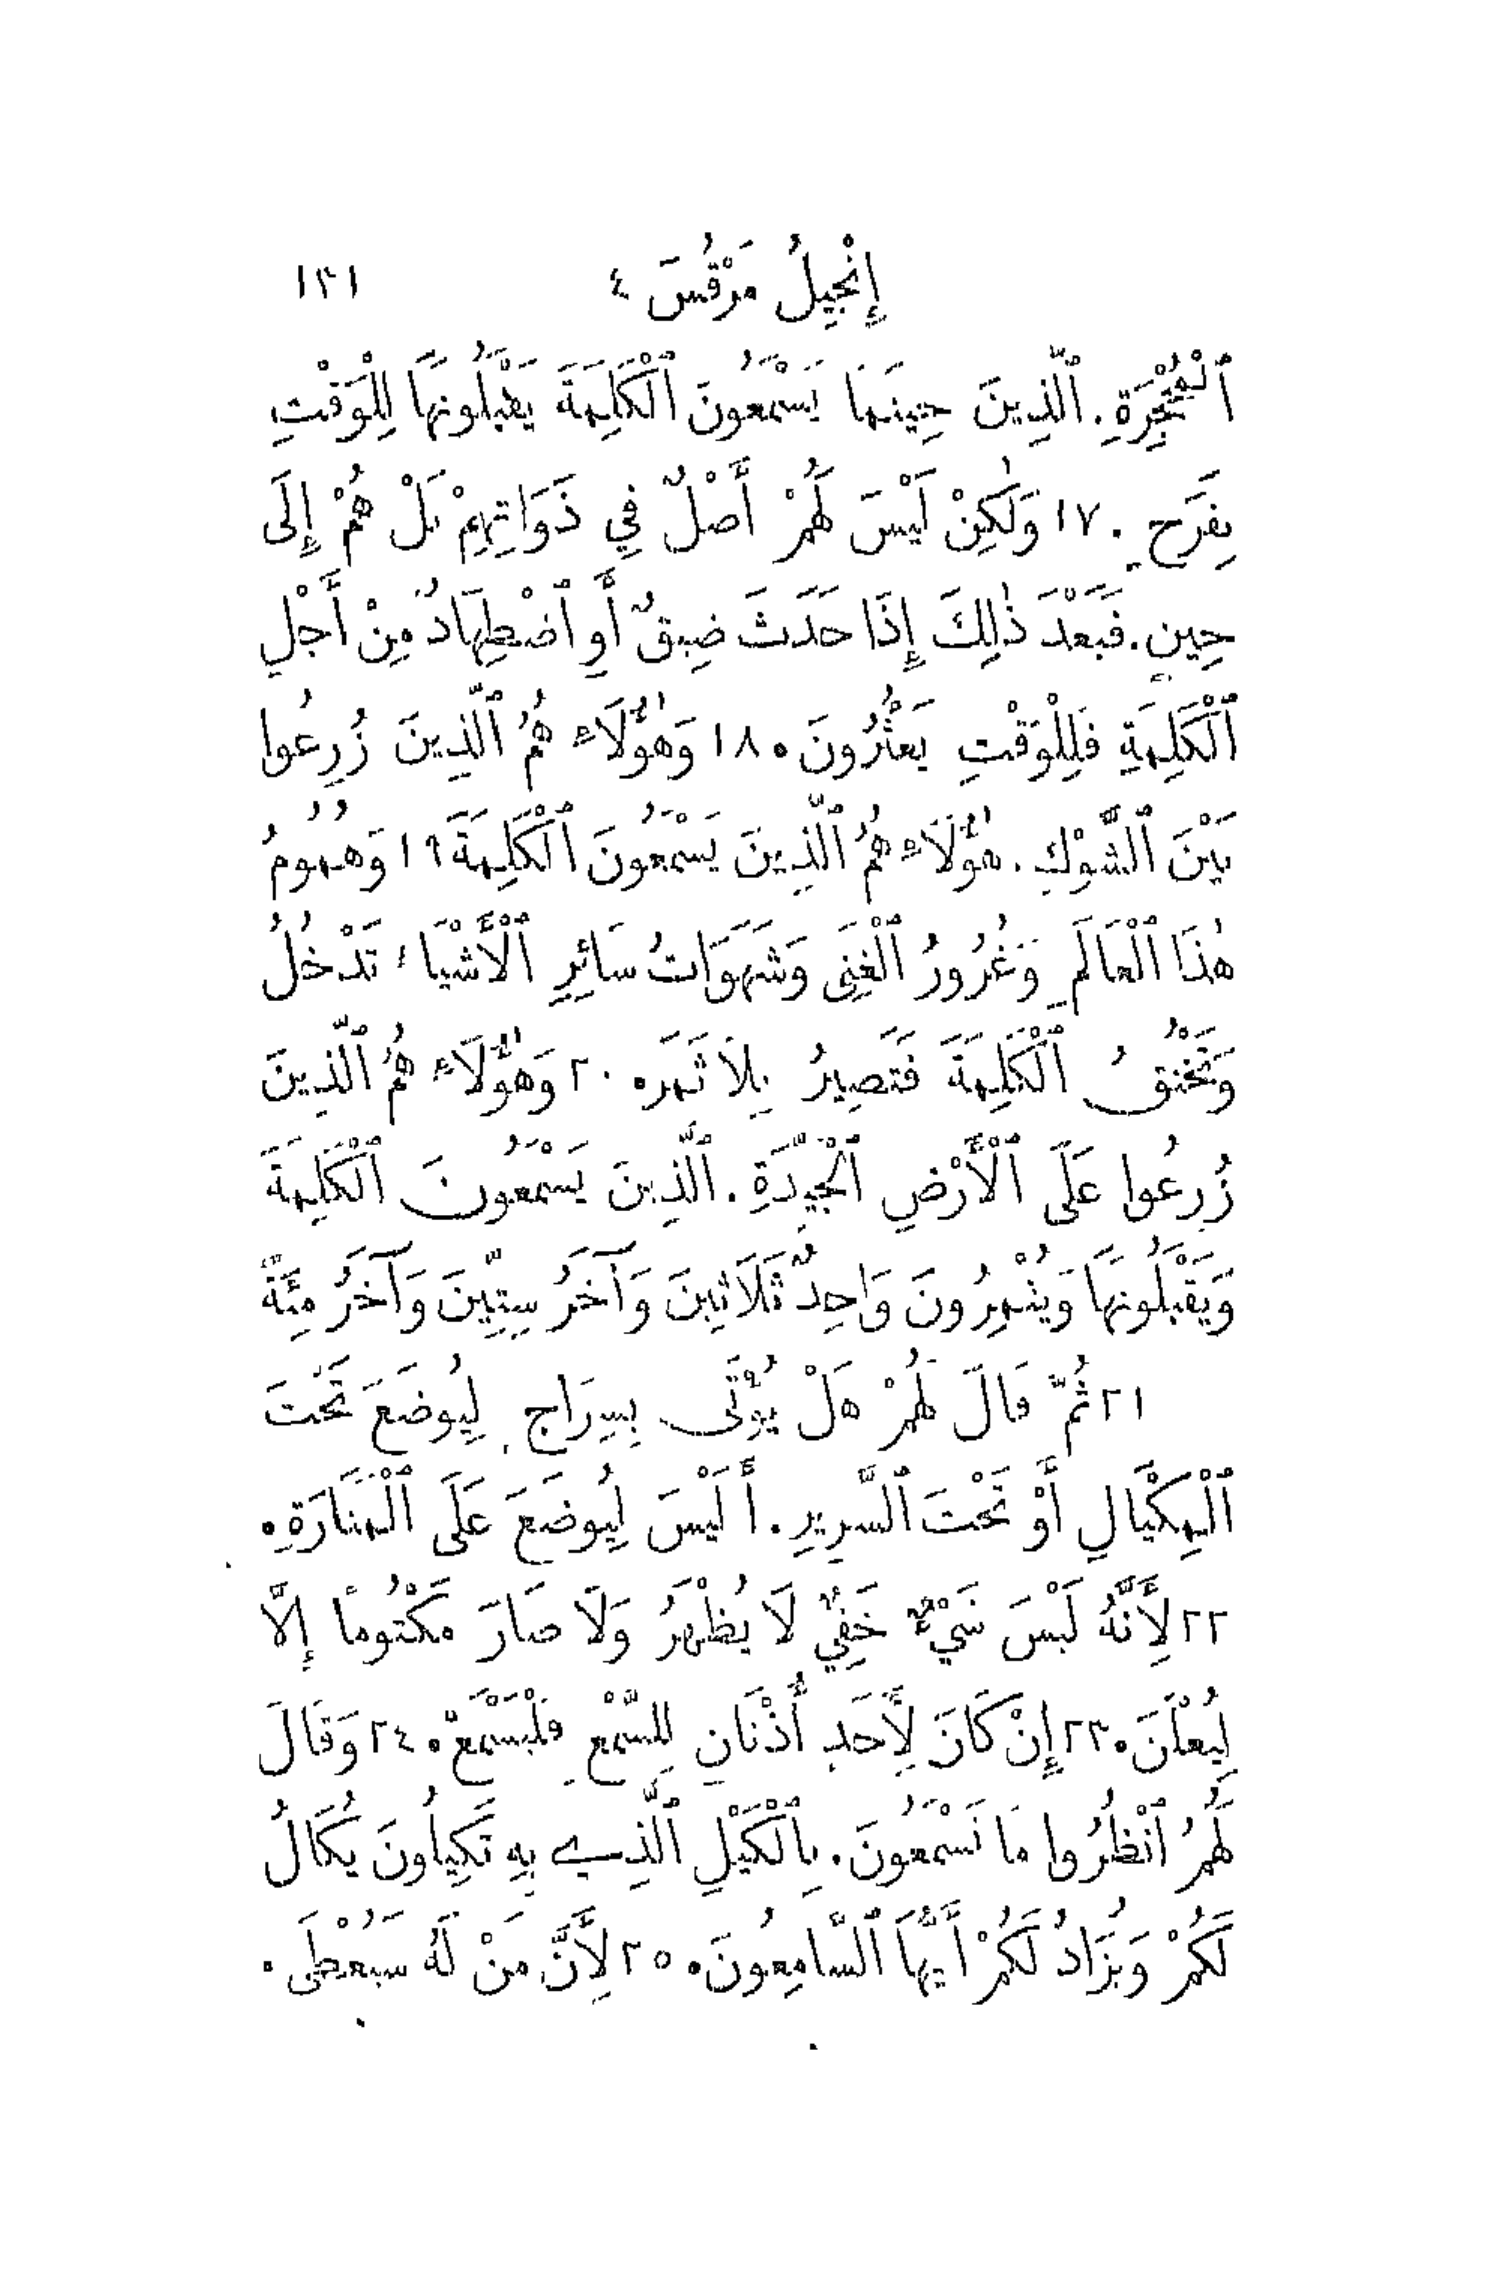 إِنْجِيلُ مَرْقُسَ ٤ ١٣١
ٱلْمُحْجِرَةِ. ٱلَّذِينَ حِينَمَا يَسْمَعُونَ ٱلْكَلِمَةَ يَقْبَلُونَهَا لِلْوَقْتِ
بِفَرَحٍ. ١٧ وَلٰكِنْ لَيْسَ لَهُمْ أَصْلٌ فِي ذَوَاتِهِمْ بَلْ هُمْ إِلَى
حِينٍ. فَبَعْدَ ذٰلِكَ إِذَا حَدَثَ ضِيقٌ أَوِ ٱضْطِهَادٌ مِنْ أَجْلِ
ٱلْكَلِمَةِ فَلِلْوَقْتِ يَعْثُرُونَ. ١٨ وَهٰؤُلَاءِ هُمُ ٱلَّذِينَ زُرِعُوا
بَيْنَ ٱلشَّوْكِ. هٰؤُلَاءِ هُمُ ٱلَّذِينَ يَسْمَعُونَ ٱلْكَلِمَةَ ١٩ وَهُمُومُ
هٰذَا ٱلْعَالَمِ وَغُرُورُ ٱلْغِنَى وَشَهَوَاتُ سَائِرِ ٱلْأَشْيَاءِ تَدْخُلُ
وَتَخْنُقُ ٱلْكَلِمَةَ فَتَصِيرُ بِلَا ثَمَرٍ. ٢٠ وَهٰؤُلَاءِ هُمُ ٱلَّذِينَ
زُرِعُوا عَلَى ٱلْأَرْضِ ٱلْجَيِّدَةِ. ٱلَّذِينَ يَسْمَعُونَ ٱلْكَلِمَةَ
وَيَقْبَلُونَهَا وَيُثْمِرُونَ وَاحِدٌ ثَلَاثِينَ وَآخَرُ سِتِّينَ وَآخَرُ مِئَةً
٢١ ثُمَّ قَالَ لَهُمْ هَلْ يُؤْتَى بِسِرَاجٍ لِيُوضَعَ تَحْتَ
ٱلْمِكْيَالِ أَوْ تَحْتَ ٱلسَّرِيرِ. أَلَيْسَ لِيُوضَعَ عَلَى ٱلْمَنَارَةِ.
٢٢ لِأَنَّهُ لَيْسَ شَيْءٌ خَفِيٌّ لَا يُظْهَرُ وَلَا صَارَ مَكْتُومًا إِلَّا
لِيُعْلَنَ. ٢٣ إِنْ كَانَ لِأَحَدٍ أُذْنَانِ لِلسَّمْعِ فَلْيَسْمَعْ. ٢٤ وَقَالَ
لَهُمُ ٱنْظُرُوا مَا تَسْمَعُونَ. بِٱلْكَيْلِ ٱلَّذِي بِهِ تَكِيلُونَ يُكَالُ
لَكُمْ وَيُزَادُ لَكُمْ أَيُّهَا ٱلسَّامِعُونَ. ٢٥ لِأَنَّ مَنْ لَهُ سَيُعْطَى.